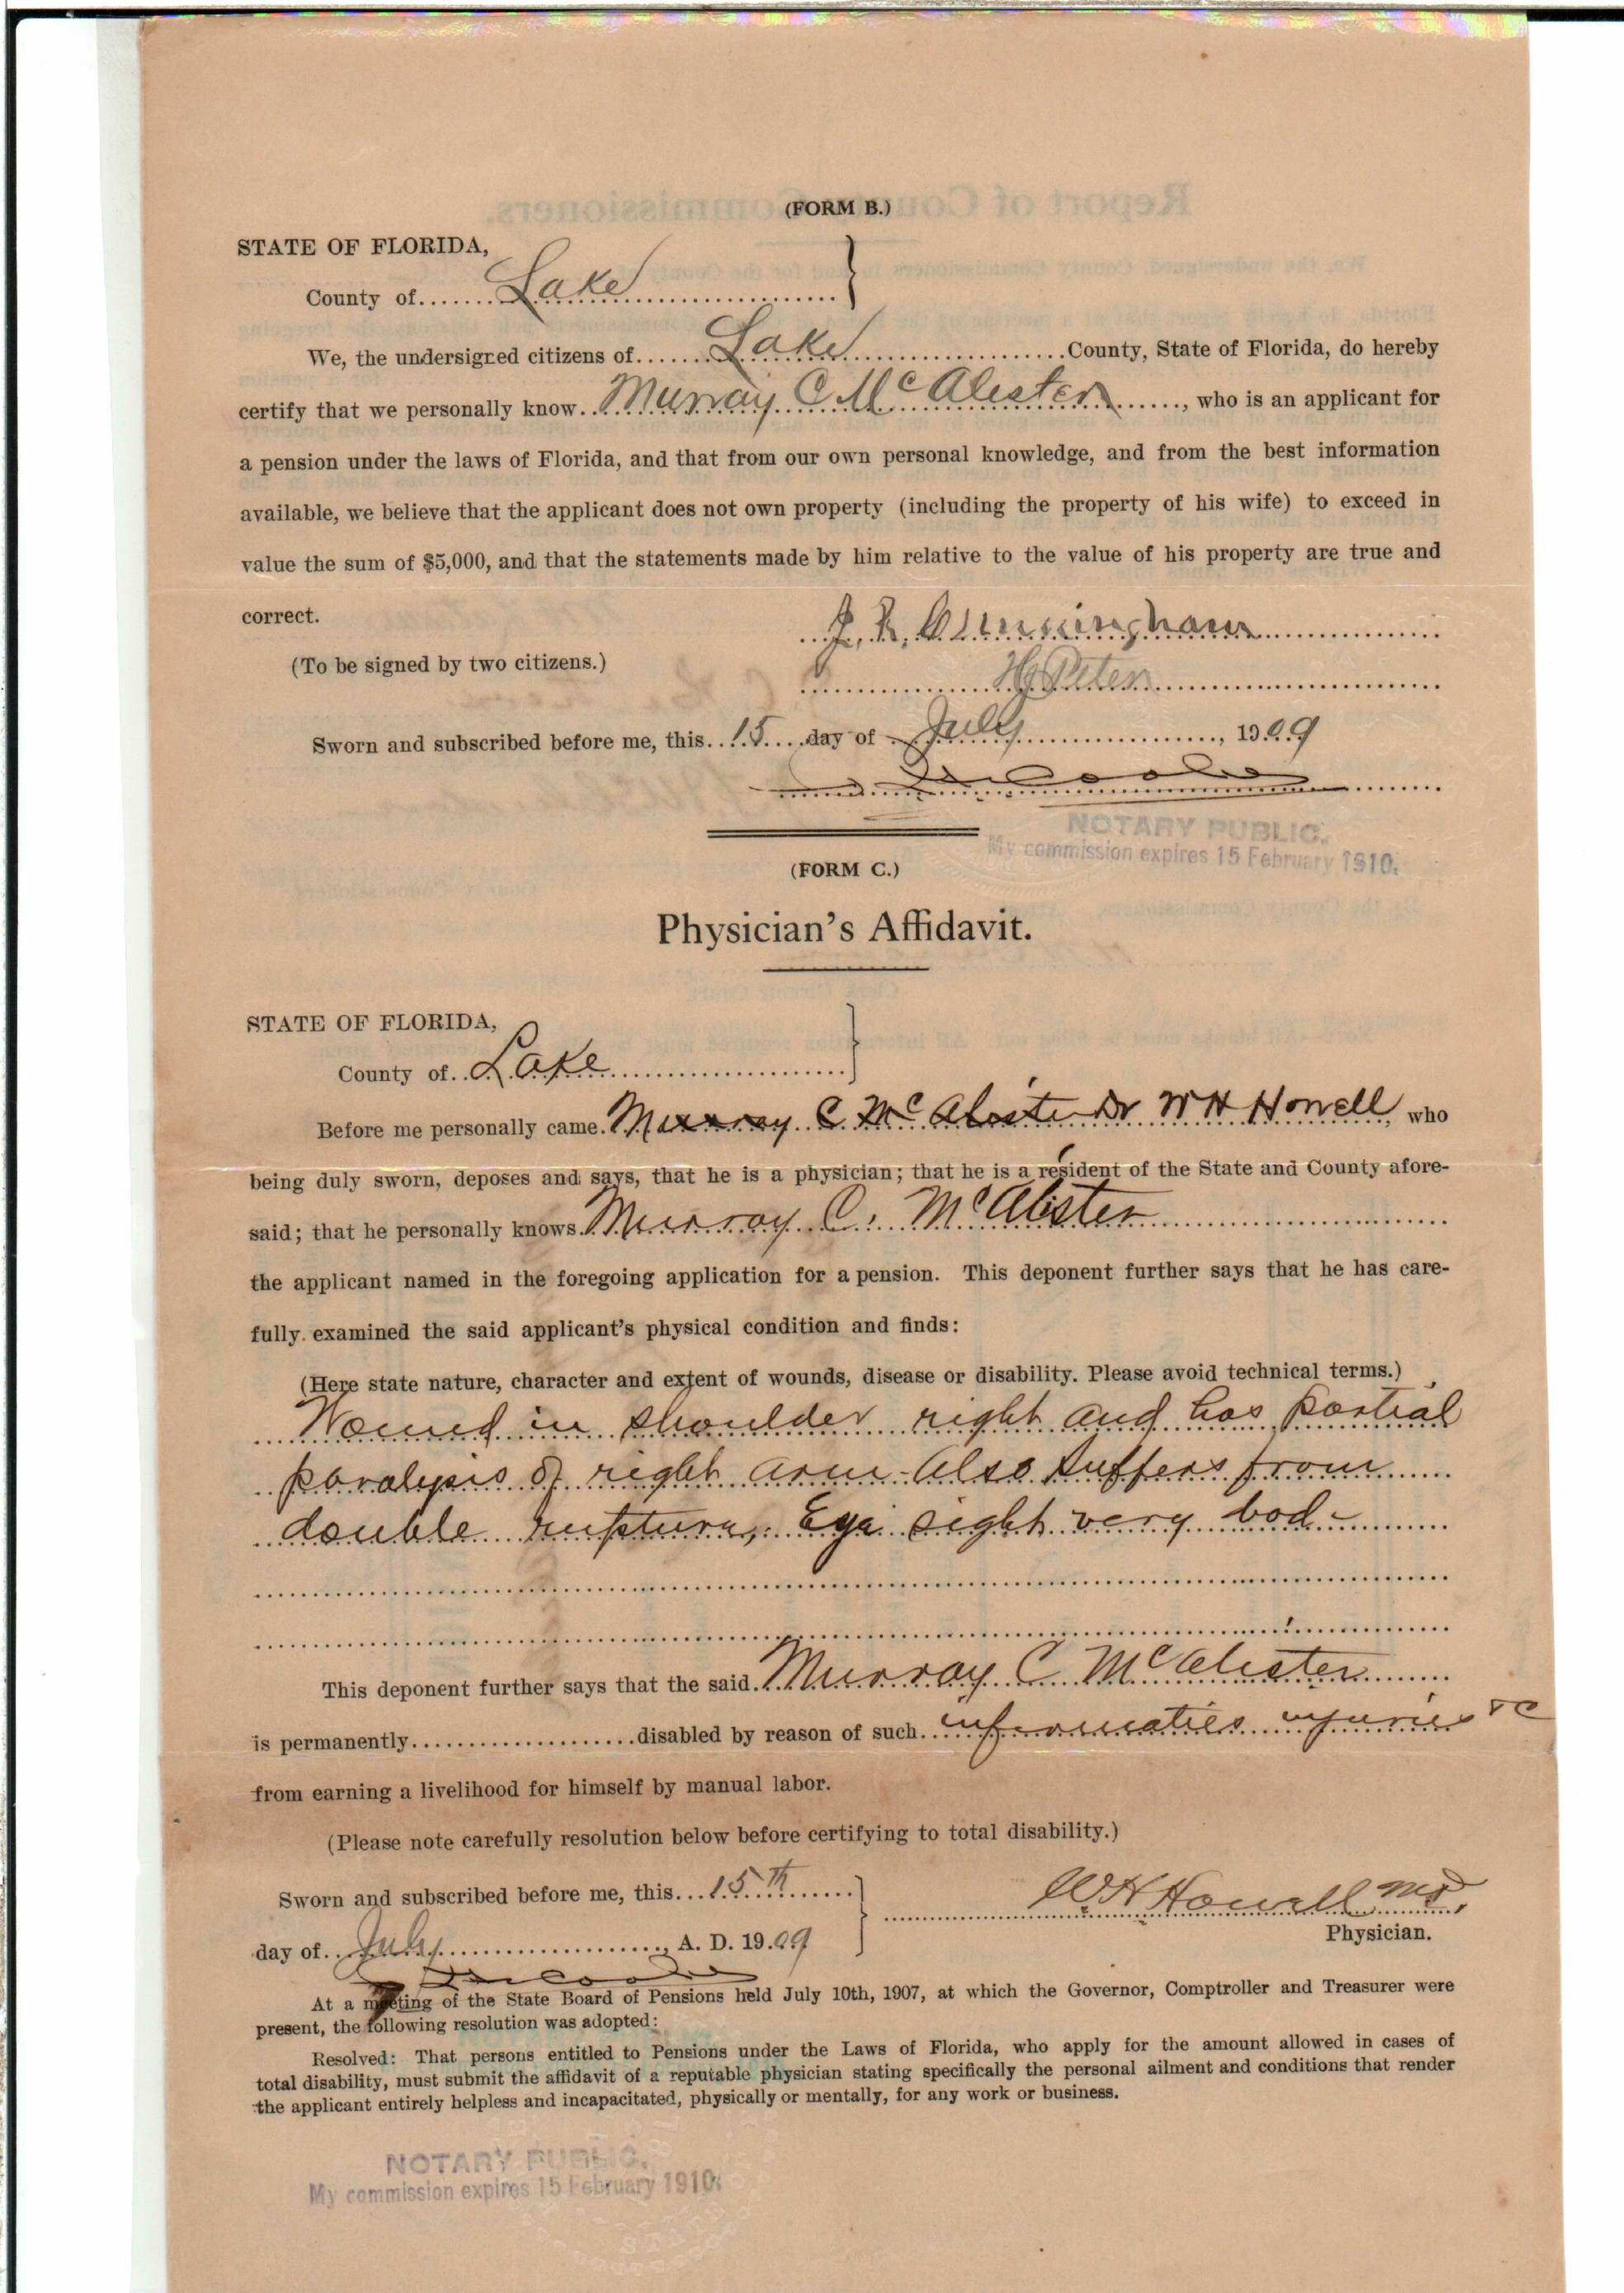 (FORM B.)
STATE OF FLORIDA,
County of Lake
We, the undersigned citizens of Lake County, State of Florida, do hereby
certify that we personally know Murray C McAlester, who is an applicant for
a pension under the laws of Florida, and that from our own personal knowledge, and from the best information
available, we believe that the applicant does not own property (including the property of his wife) to exceed in
value the sum of $5,000, and that the statements made by him relative to the value of his property are true and
correct.
J. R. Cunningham
(To be signed by two citizens.)
H Peter
Sworn and subscribed before me, this 15 day of July, 1909
NOTARY PUBLIC.
My commission expires 15 February 1910.
(FORM C.)
Physician's Affidavit.
STATE OF FLORIDA,
County of Lake
Before me personally came Murray C McAlister Dr W H Howell, who
being duly sworn, deposes and says, that he is a physician; that he is a resident of the State and County afore-
said; that he personally knows Murray C. McAlister
the applicant named in the foregoing application for a pension. This deponent further says that he has care-
fully examined the said applicant's physical condition and finds:
(Here state nature, character and extent of wounds, disease or disability. Please avoid technical terms.)
Wound in shoulder right and has partial
paralysis of right arm - Also suffers from
double rupture, Eye sight very bad -
This deponent further says that the said Murray C McAlester
is permanently disabled by reason of such infirmaties injuries &c
from earning a livelihood for himself by manual labor.
(Please note carefully resolution below before certifying to total disability.)
Sworn and subscribed before me, this 15th
W H Howell MD.
Physician.
day of July, A. D. 1909
At a meeting of the State Board of Pensions held July 10th, 1907, at which the Governor, Comptroller and Treasurer were
present, the following resolution was adopted:
Resolved: That persons entitled to Pensions under the Laws of Florida, who apply for the amount allowed in cases of
total disability, must submit the affidavit of a reputable physician stating specifically the personal ailment and conditions that render
the applicant entirely helpless and incapacitated, physically or mentally, for any work or business.
NOTARY PUBLIC.
My commission expires 15 February 1910.